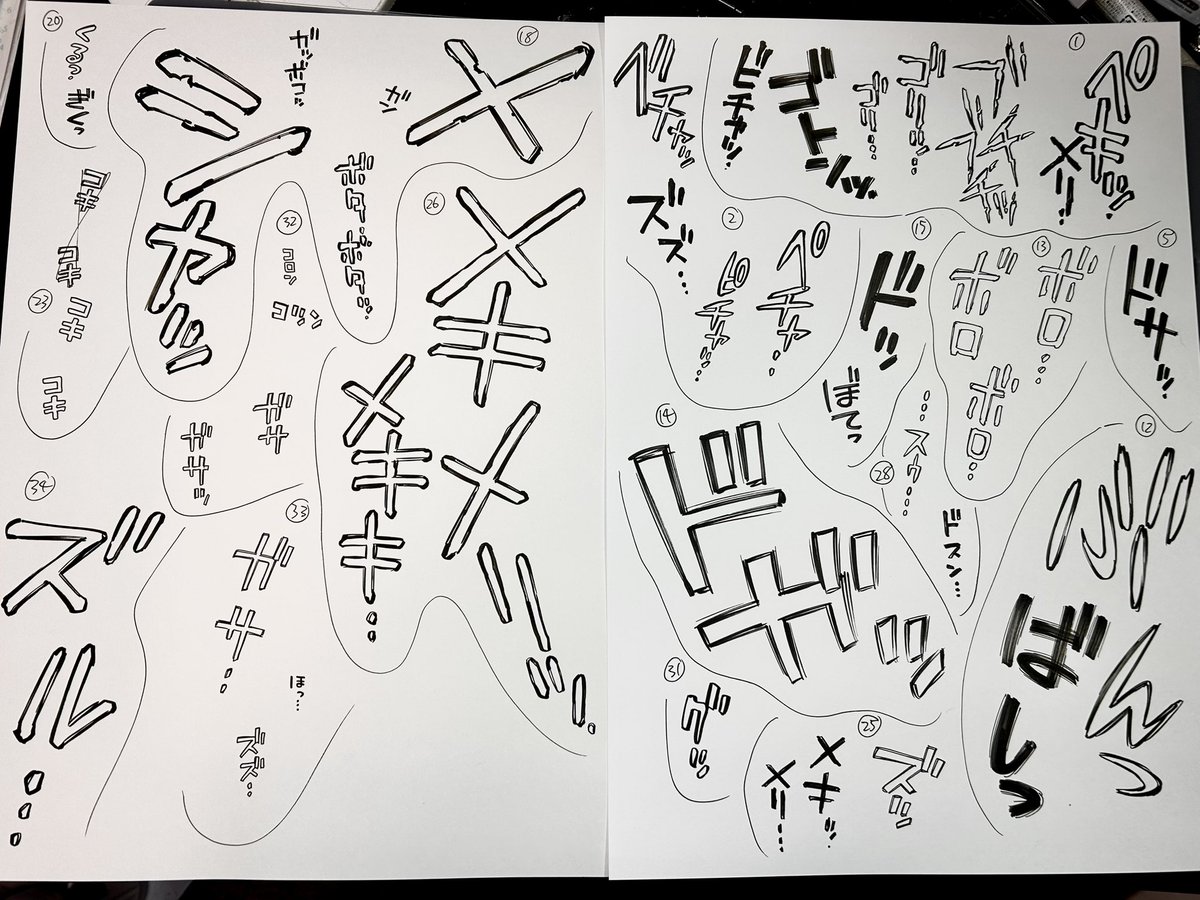 ①
ペキッ
メリ…
ズ…
ゴトンッ
ビチャッ
グチャッ
ズズ…
②
ペチャ
ピチャッ…
⑤
ドサッ
⑬
ボロ…
ボロ
ボロ…
⑲
ドッ
ぼてっ
㉘
…スゥ…
ドスン…
⑫
ぶん
ばしっ
⑭
ドガッ
㉛
グッ
㉕
ズッ
メキッ
メリ…
⑱
メ
ガッ
ガッ
ミシャッ
ボタボタ…
⑳
くるっ
㉖
メキメリ…ッ
メキキ…
㉜
コロン
コツン
ガサ
ガサッ
㉓
コキ
コキ
コキ
コキ
㉝
ガサ…
ほっ…
ズズ…
㉞
ズル…